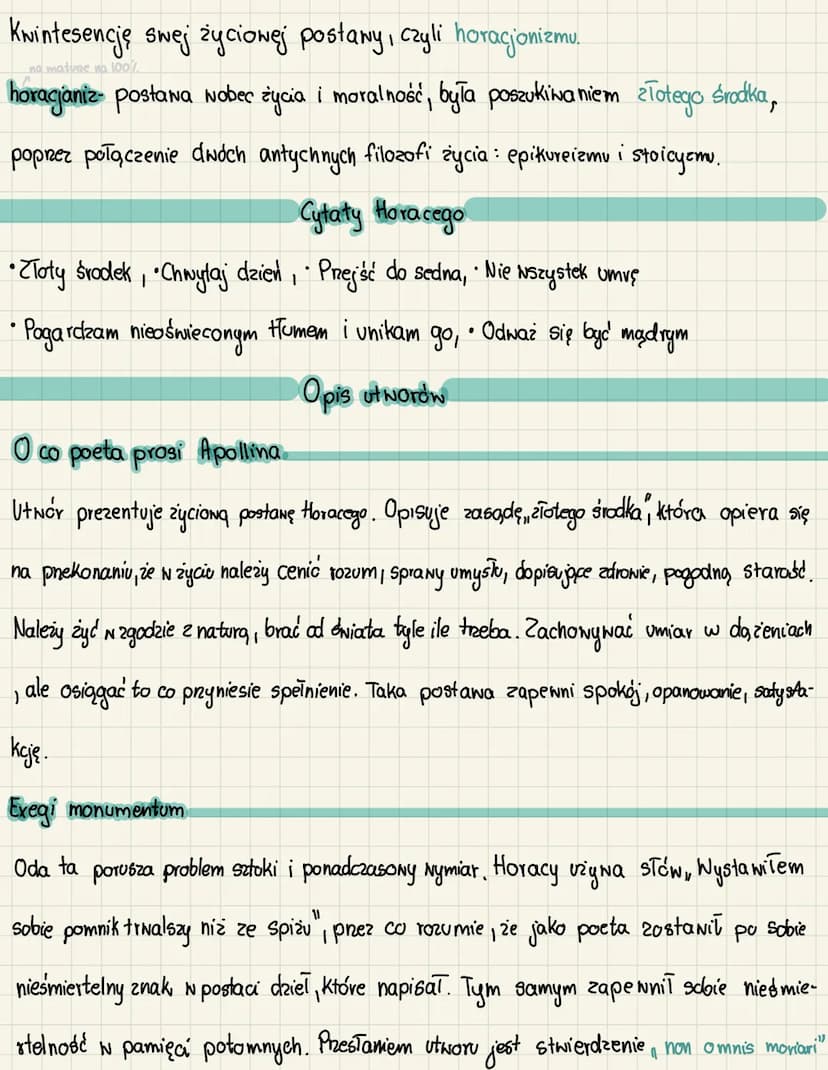 Kwintesencję swej życiowej postawy, czyli horacjonizmu.
na maturae na 100%
horacjaniz- postawa wobec życia i moralność, była poszukiwaniem złotego środka,
poprzez połączenie dwóch antychnych filozofi życia: epikureizmu i stoicyzmu.
Cytaty Horacego
• Złoty środek, • Chwytaj dzień, • Przejść do sedna, • Nie wszystek umrę
• Pogardzam nieoświeconym tłumem i unikam go, • Odważ się być mądrym
Opis utworów
O co poeta prosi Apollina
Utwór prezentuje życiową postawę Horacego. Opisuje zasadę „złotego środka", która opiera się
na przekonaniu, że w życiu należy cenić rozum, sprawny umysłu, dopisujące zdrowie, pogodną starość.
Należy żyć w zgodzie z naturą, brać od świata tyle ile trzeba. Zachowywać umiar w dążeniach
, ale osiągać to co przyniesie spełnienie. Taka postawa zapewni spokój, opanowanie, satysfa-
kcję.
Exegi monumentum
Oda ta porusza problem sztuki i ponadczasowy wymiar. Horacy używa słów „Wystawiłem
sobie pomnik trwalszy niż ze spiżu", przez co rozumie, że jako poeta zostawił po sobie
nieśmiertelny znak w postaci dzieł, które napisał. Tym samym zapewnił sobie nieśmie-
rtelność w pamięci potomnych. Przesłaniem utworu jest stwierdzenie „non omnis moriari"